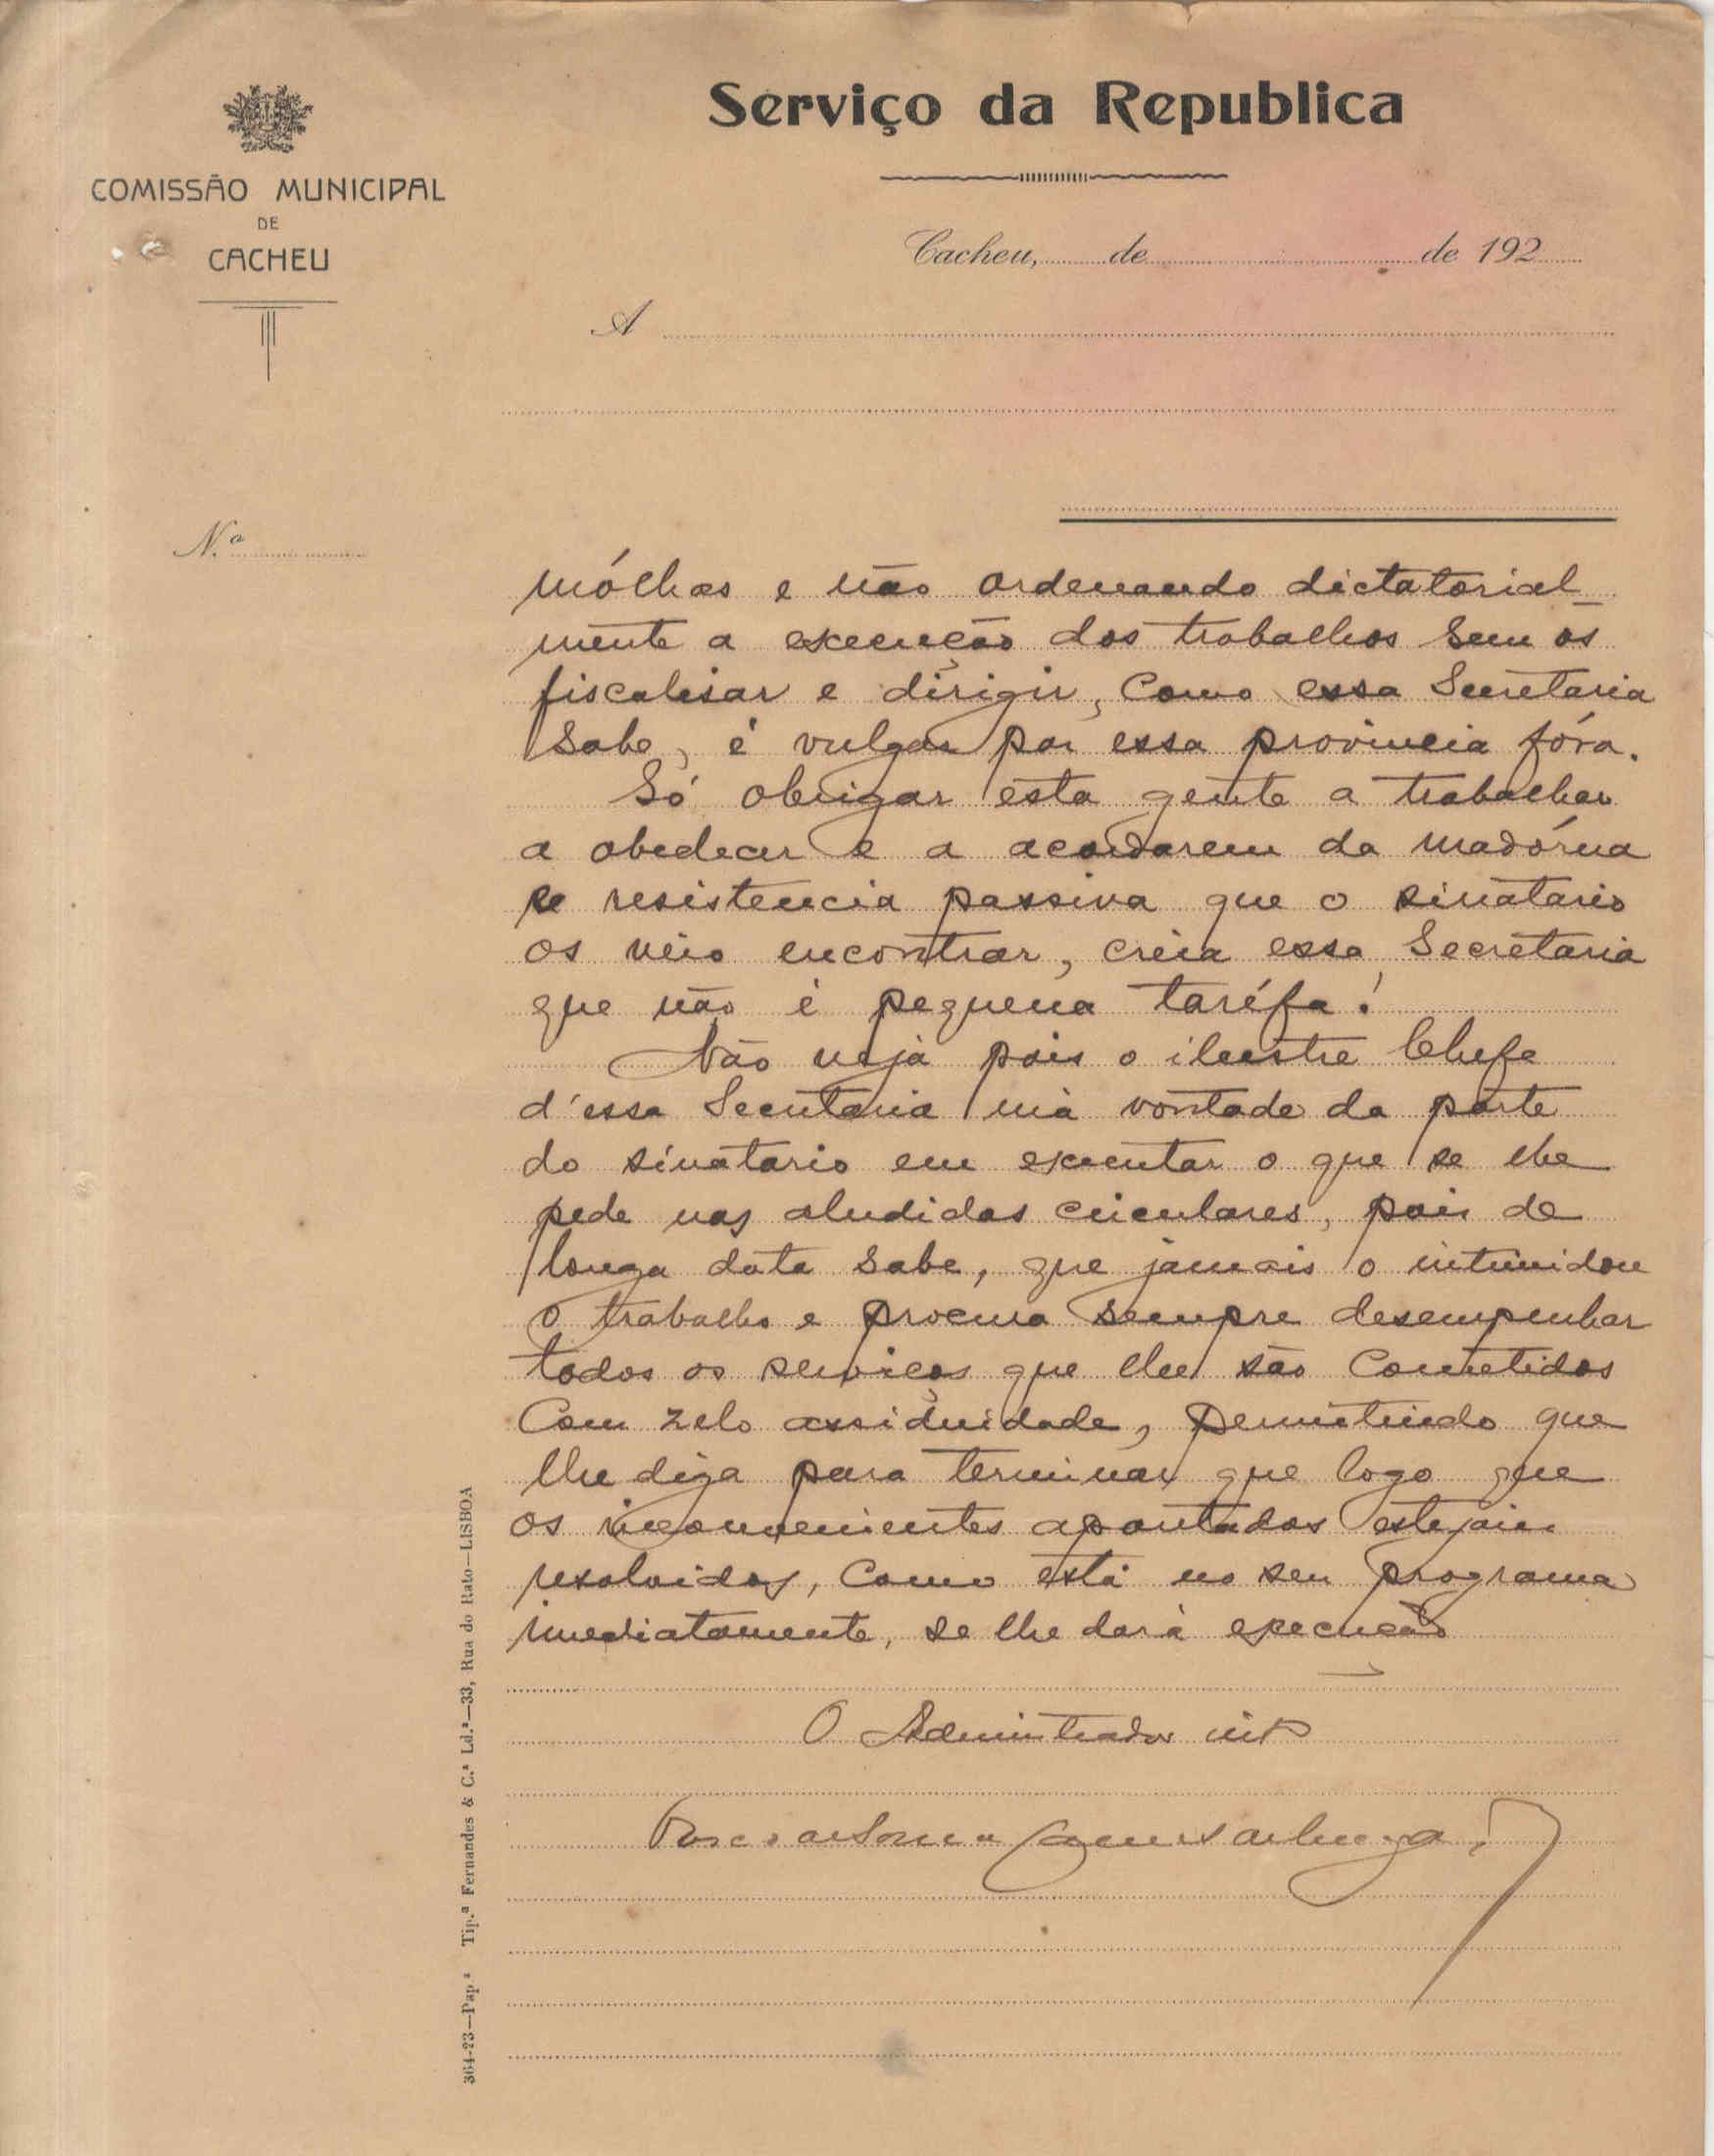 Serviço da Republica
COMISSÃO MUNICIPAL
DE
CACHEU
Cacheu, de de 192
A
N.º
mólhas e não ordenando dictatorial-
mente a execução dos trabalhos sem os
fiscalisar e dirigir, como essa Secretaria
sabe, é vulgar por essa provincia fóra.
Só obrigar esta gente a trabalhar
a obedecer e a acordarem da madórna
e resistencia passiva que o sinatario
os veio encontrar, creia essa Secretaria
que não é pequena taréfa!
Não veja pois o ilustre Chefe
d'essa Secretaria má vontade da parte
do sinatario em executar o que se lhe
pede nas aludidas circulares, pois de
longa data sabe, que jamais o intimidou
o trabalho e procura sempre desempenhar
todos os serviços que lhe são cometidos
com zelo assiduidade, permitindo que
lhe diga para terminar que logo que
os inconvenientes apontados estejam
resolvidos, como está no seu programa
imediatamente, se lhe dará execução
O Administrador intº
364-23—Pap.ª Tip.ª Fernandes & C.ª Ld.ª—33, Rua do Rato—LISBOA